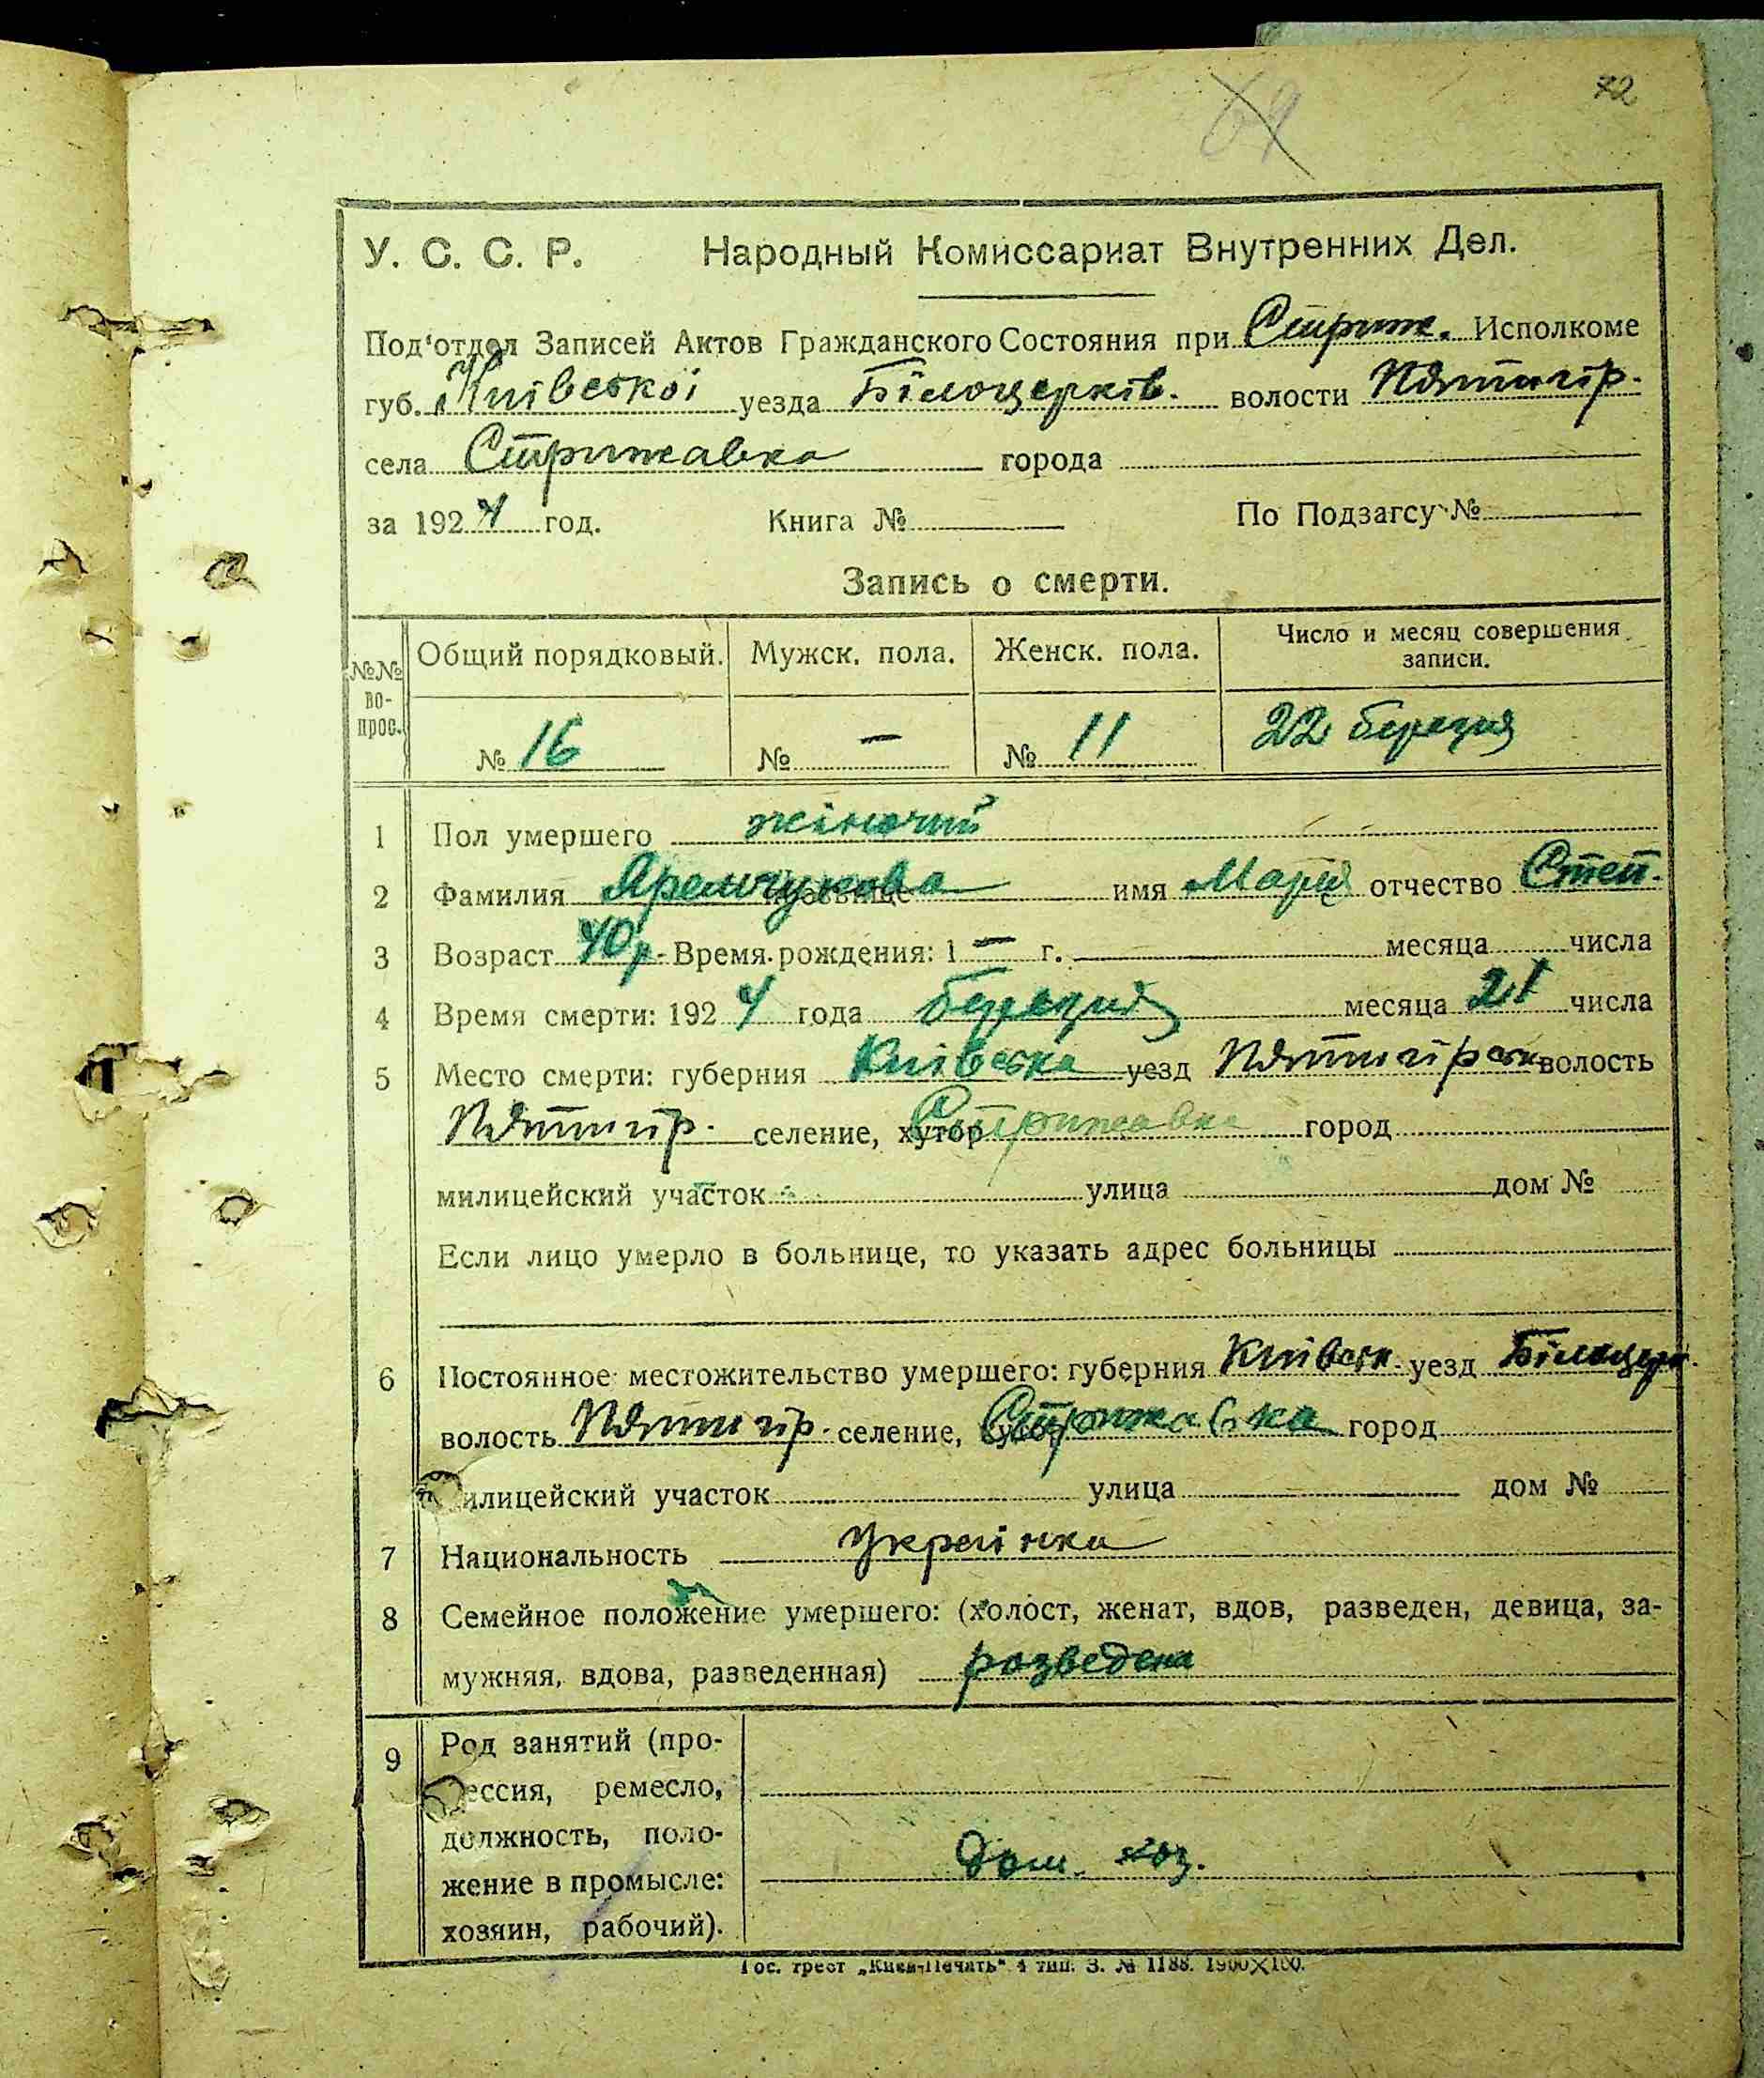 72
69
У. С. С. Р. Народный Комиссариат Внутренних Дел.
Под'отдел Записей Актов Гражданского Состояния при Стриж. Исполкоме
губ. Київської уезда Білоцерків. волости Пятигір.
села Стрижавка города
за 1924 год. Книга № По Подзагсу №
Запись о смерти.
№№ вопрос. Общий порядковый. Мужск. пола. Женск. пола. Число и месяц совершения записи.
№ 16 № — № 11 22 березня
1 Пол умершего жіночий
2 Фамилия Яремчукова имя Марія отчество Степ.
3 Возраст 40 р. Время рождения: 1 — г. месяца числа
4 Время смерти: 1924 года березня месяца 21 числа
5 Место смерти: губерния Київська уезд Пятигірськ волость
Пятигір. селение, хутор Стрижавка город
милицейский участок улица дом №
Если лицо умерло в больнице, то указать адрес больницы
6 Постоянное местожительство умершего: губерния Київськ. уезд Білоцерк.
волость Пятигір. селение, Стрижавка город
милицейский участок улица дом №
7 Национальность Українка
8 Семейное положение умершего: (холост, женат, вдов, разведен, девица, за-
мужняя, вдова, разведенная) розведена
9 Род занятий (про-
ессия, ремесло,
должность, поло-
жение в промысле: дом. хоз.
хозяин, рабочий).
Гос. трест „Киев-Печать" 4 тип. З. № 1188. 1900×100.